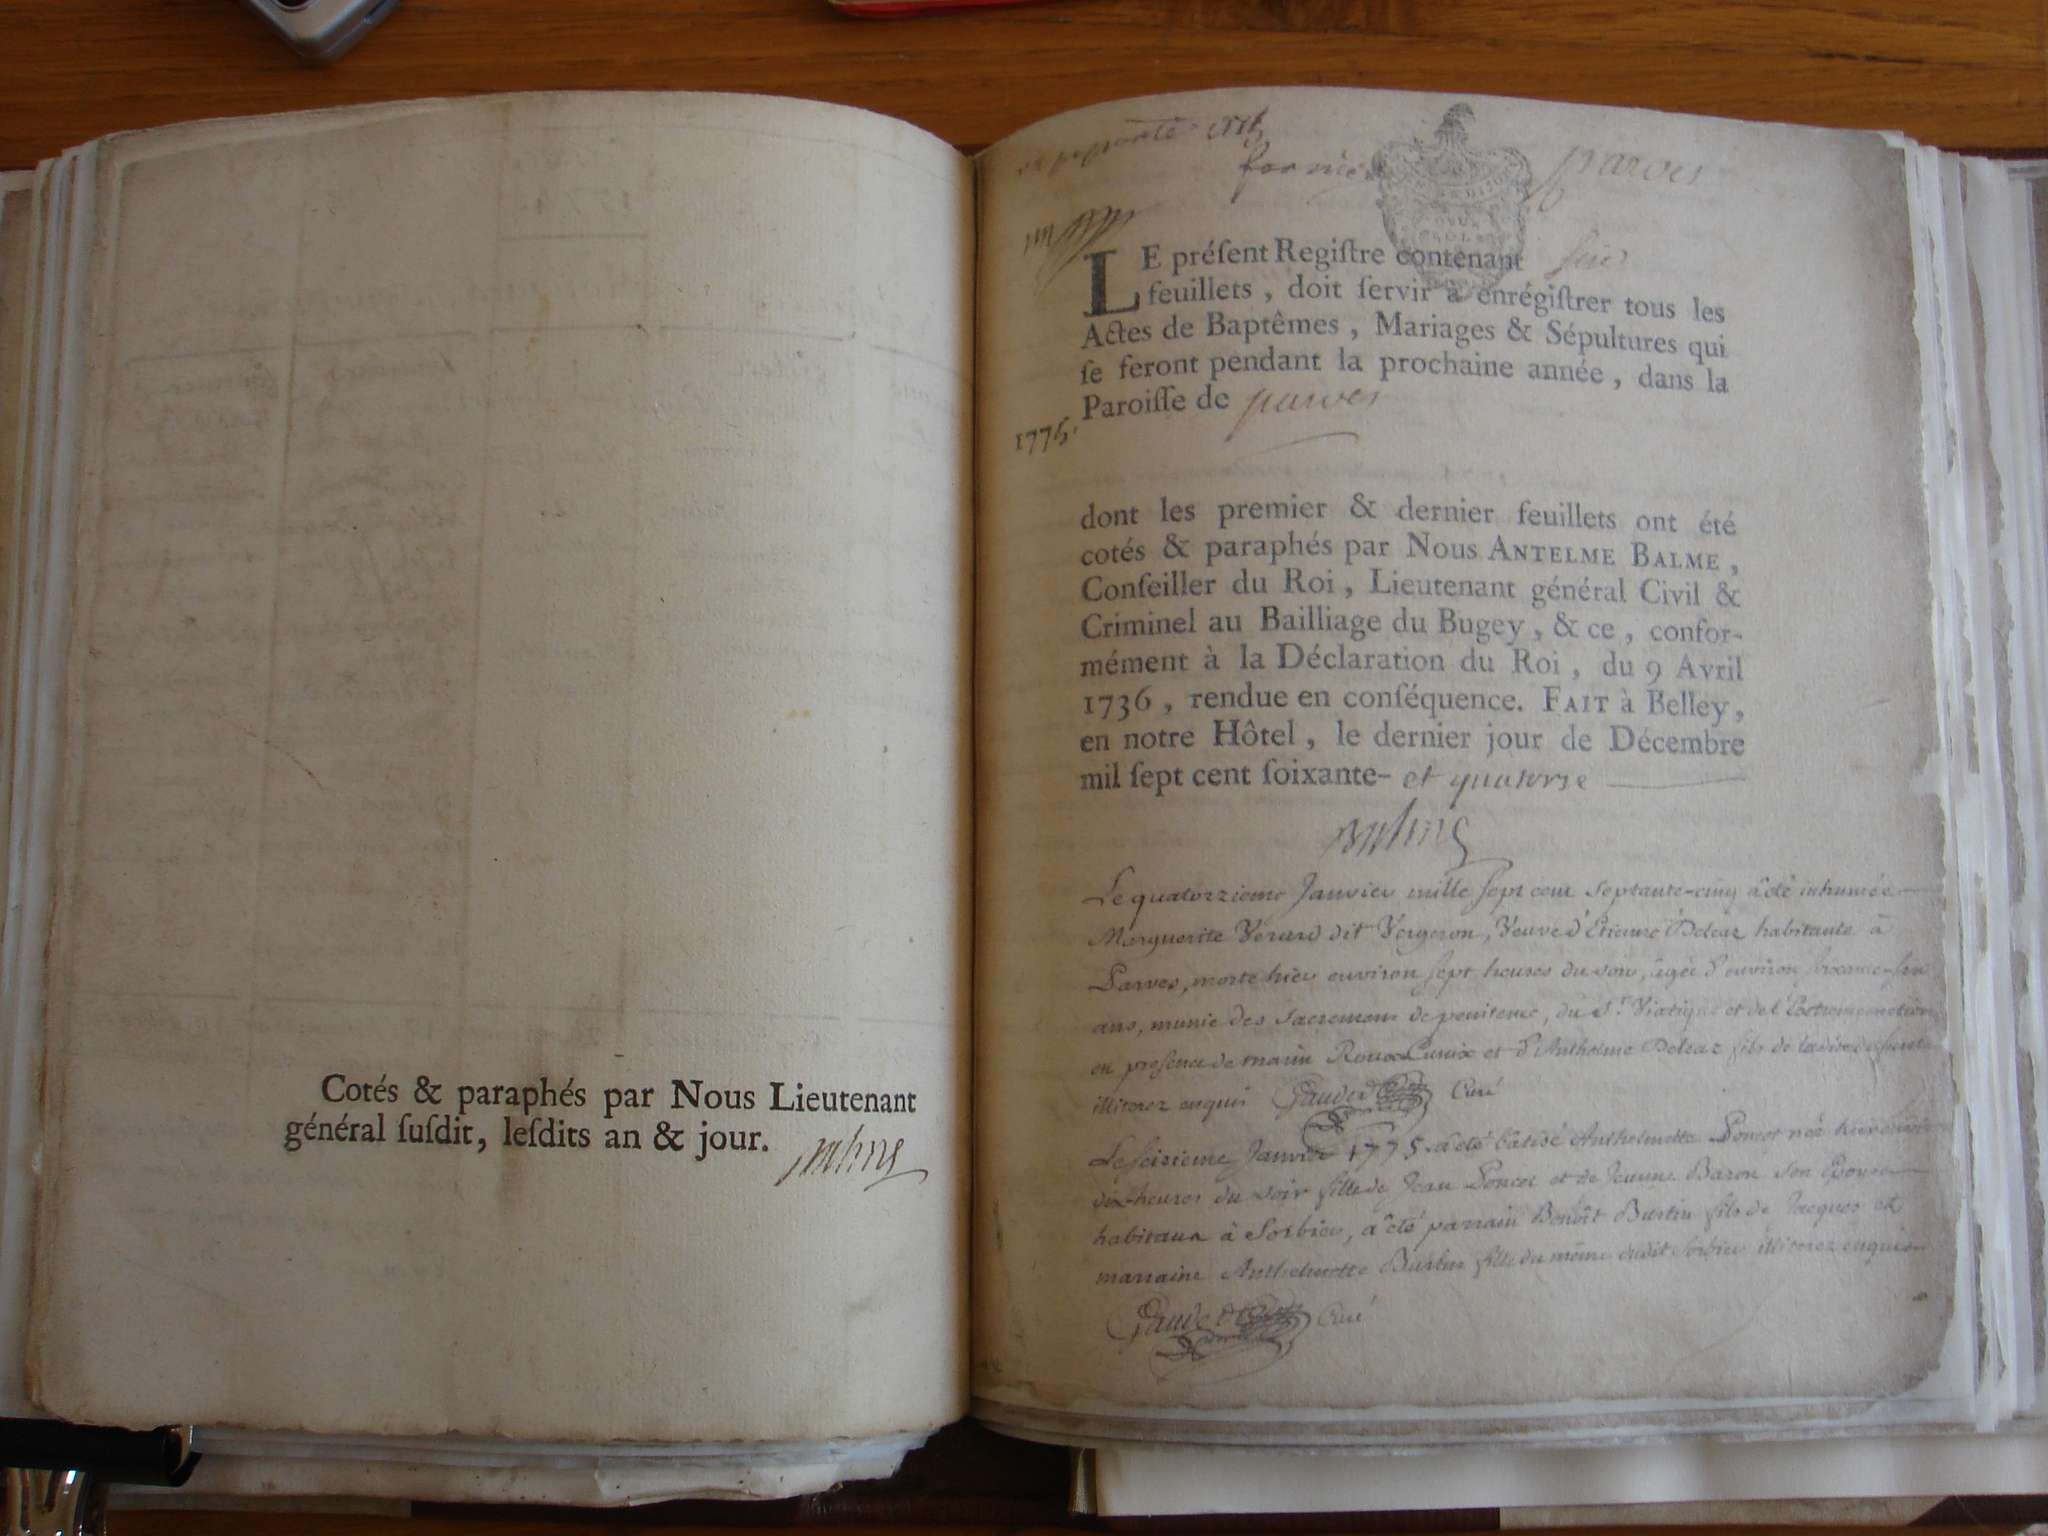 Cotés & paraphés par Nous Lieutenant
général ſuſdit, leſdits an & jour.
parves
LE préſent Regiſtre contenant
feuillets, doit ſervir à enrégiſtrer tous les
Actes de Baptêmes, Mariages & Sépultures qui
ſe feront pendant la prochaine année, dans la
Paroiſſe de parves
1775.
dont les premier & dernier feuillets ont été
cotés & paraphés par Nous ANTELME BALME,
Conſeiller du Roi, Lieutenant général Civil &
Criminel au Bailliage du Bugey, & ce, confor-
mément à la Déclaration du Roi, du 9 Avril
1736, rendue en conſéquence. FAIT à Belley,
en notre Hôtel, le dernier jour de Décembre
mil ſept cent ſoixante- et quatorse
Le quatorzieme Janvier mille sept cent septante-cinq a été inhumée
Marguerite Verard dit Vergeron, Veuve d'Etienne Deleaz habitante à
Parves, morte hier environ sept heures du soir, agée d'environ soixante-
ans, munie des sacremens de penitence, du St. Viatique et de l'Extremeonction
en presence de Roux et d'Anthelme Deleaz fils de ladite defunte
illiterez enquis Gaudet Curé
Le seizieme Janvier 1775. a été batisé Anthelmette Poncet née hier environ
dix-heures du soir fille de Jean Poncet et de Jeanne Baron son Epouse
habitans à Sorbier, a été parrain Benoît Burtin fils de Jacques et
marraine Anthelmette Burtin fille du même dudit Sorbier illiterez enquis
Gaudet Curé